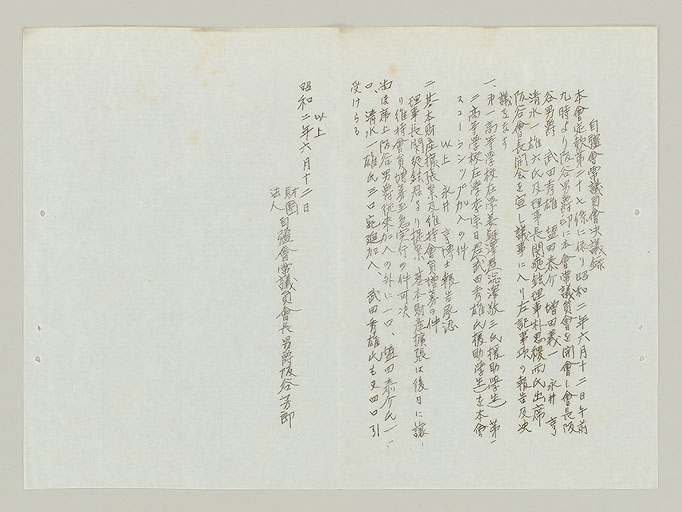 自彊會常議員會決議録
本會定款第二十七條に依り昭和二年六月十二日午前
九時より阪谷男爵邸に本會常議員會を開會し會長阪
谷男爵 武田秀雄 盬田泰介 増田義一 永井 亨
清水一雄六氏及理事長関頭鉉理事朴思稷両氏出席
阪谷會長開會を宣し議事に入り左記事項の報告及決
議をなす
一、第一高等学校在学 氏援助学生 第一
高等学校在学 武田秀雄氏援助学生を本會
スコーラシップ加入の件
以上 永井 亨博士報告承認
二基本財産擴張案及維持會員増募の件
理事長 君より提案基本財産擴張は後日に譲
り維持會員増募至急実行の件可決
尚ほ席上阪谷男爵従来加入の外に一口、盬田泰介氏一
口、清水一雄氏二口宛追加入 武田秀雄氏も又四口引
受けらる
以上
昭和二年六月十二日
財團
法人 自彊會常議員會長 男爵阪谷芳郎